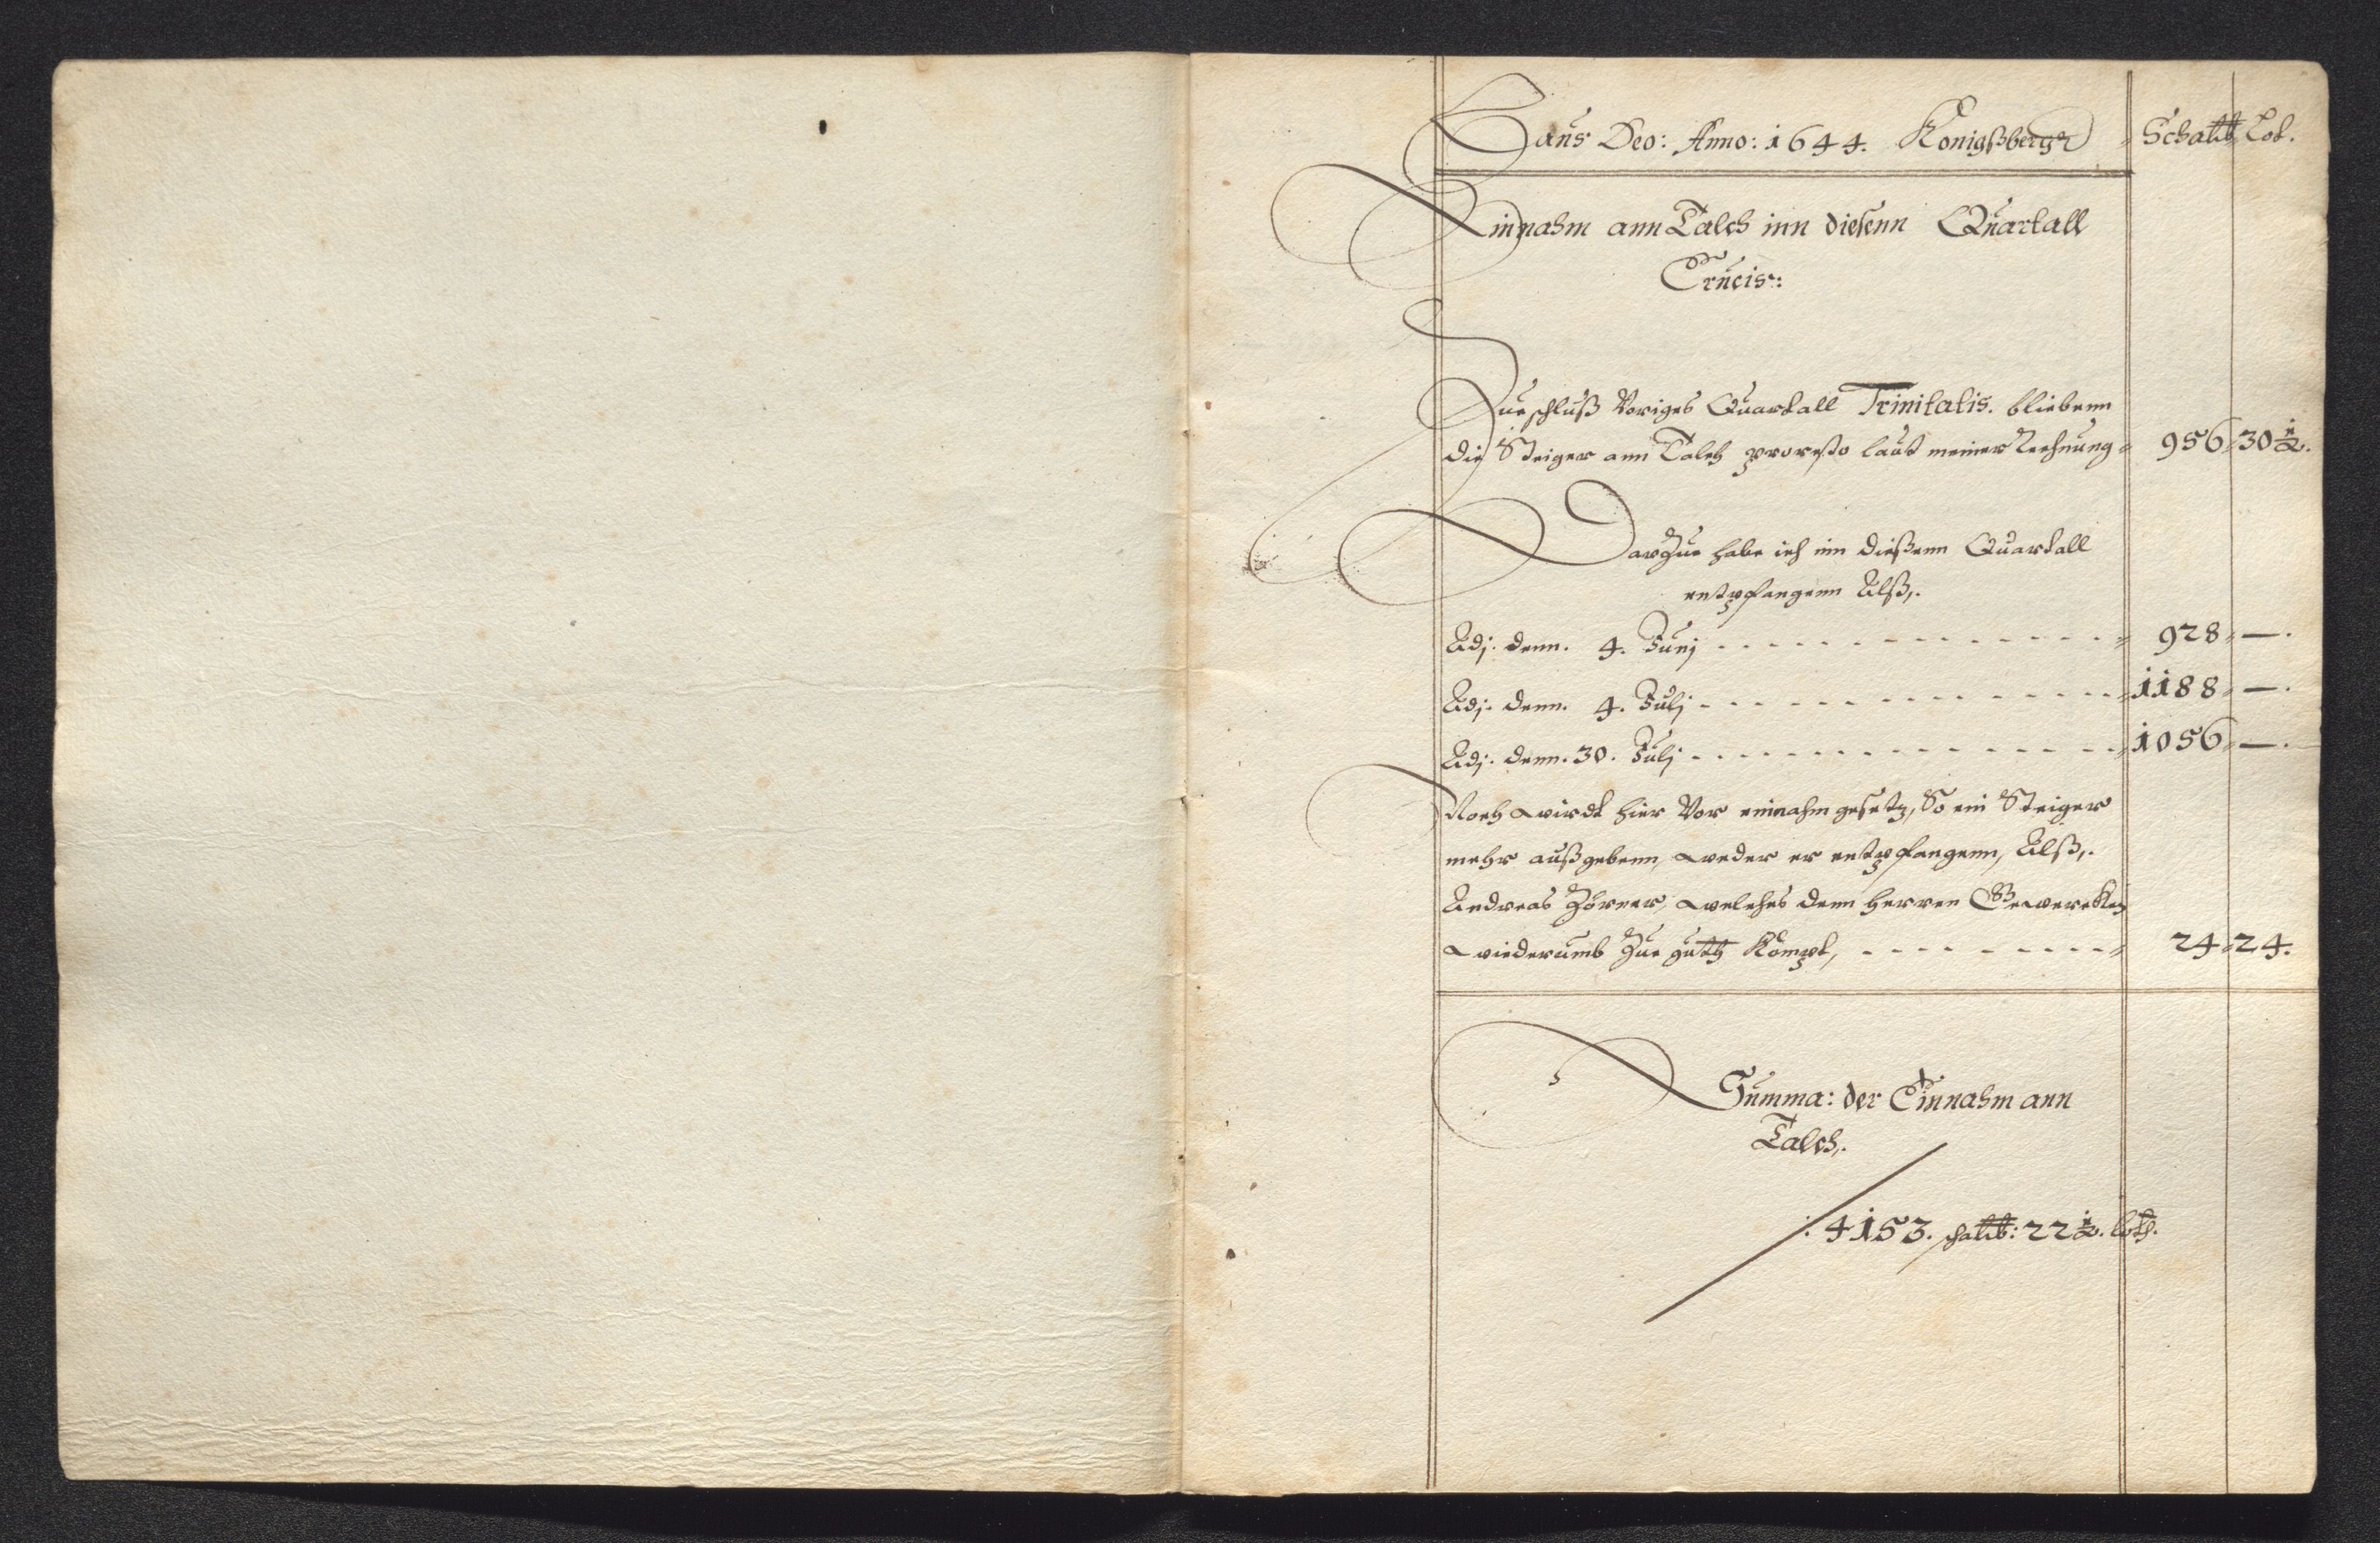 Laus Deo: Anno: 1644. Konigßbergk Schalt℔ Lot.
Einnahm ann Talch inn diesenn Quartall
Crucis:
Zue schluß Voriges Quartall Trinitatis. bliebenn
die Steiger ann Talch pro resto laut meiner Rechnung 956 30½.
Dar Zue habe ich inn dießenn Quartall
entpfangenn Alß,.
Adj. denn. 4. Junj - - - - 928 —.
Adj. denn. 4. Julj - - - - 1188 —.
Adj. denn. 30. Julj - - - - 1056 —.
Noch wirdt hier Vor einnahm gesetz, So ein Steiger
mehr außgebenn, weder er entpfangenn, Alß,.
Andreas Zörner, welches denn herren Gewercken
wiederumb Zue guth Kompt, - - - - 24 24.
Summa: der Einnahm ann
Talch,.
: 4153. schalt℔: 22½. loth.